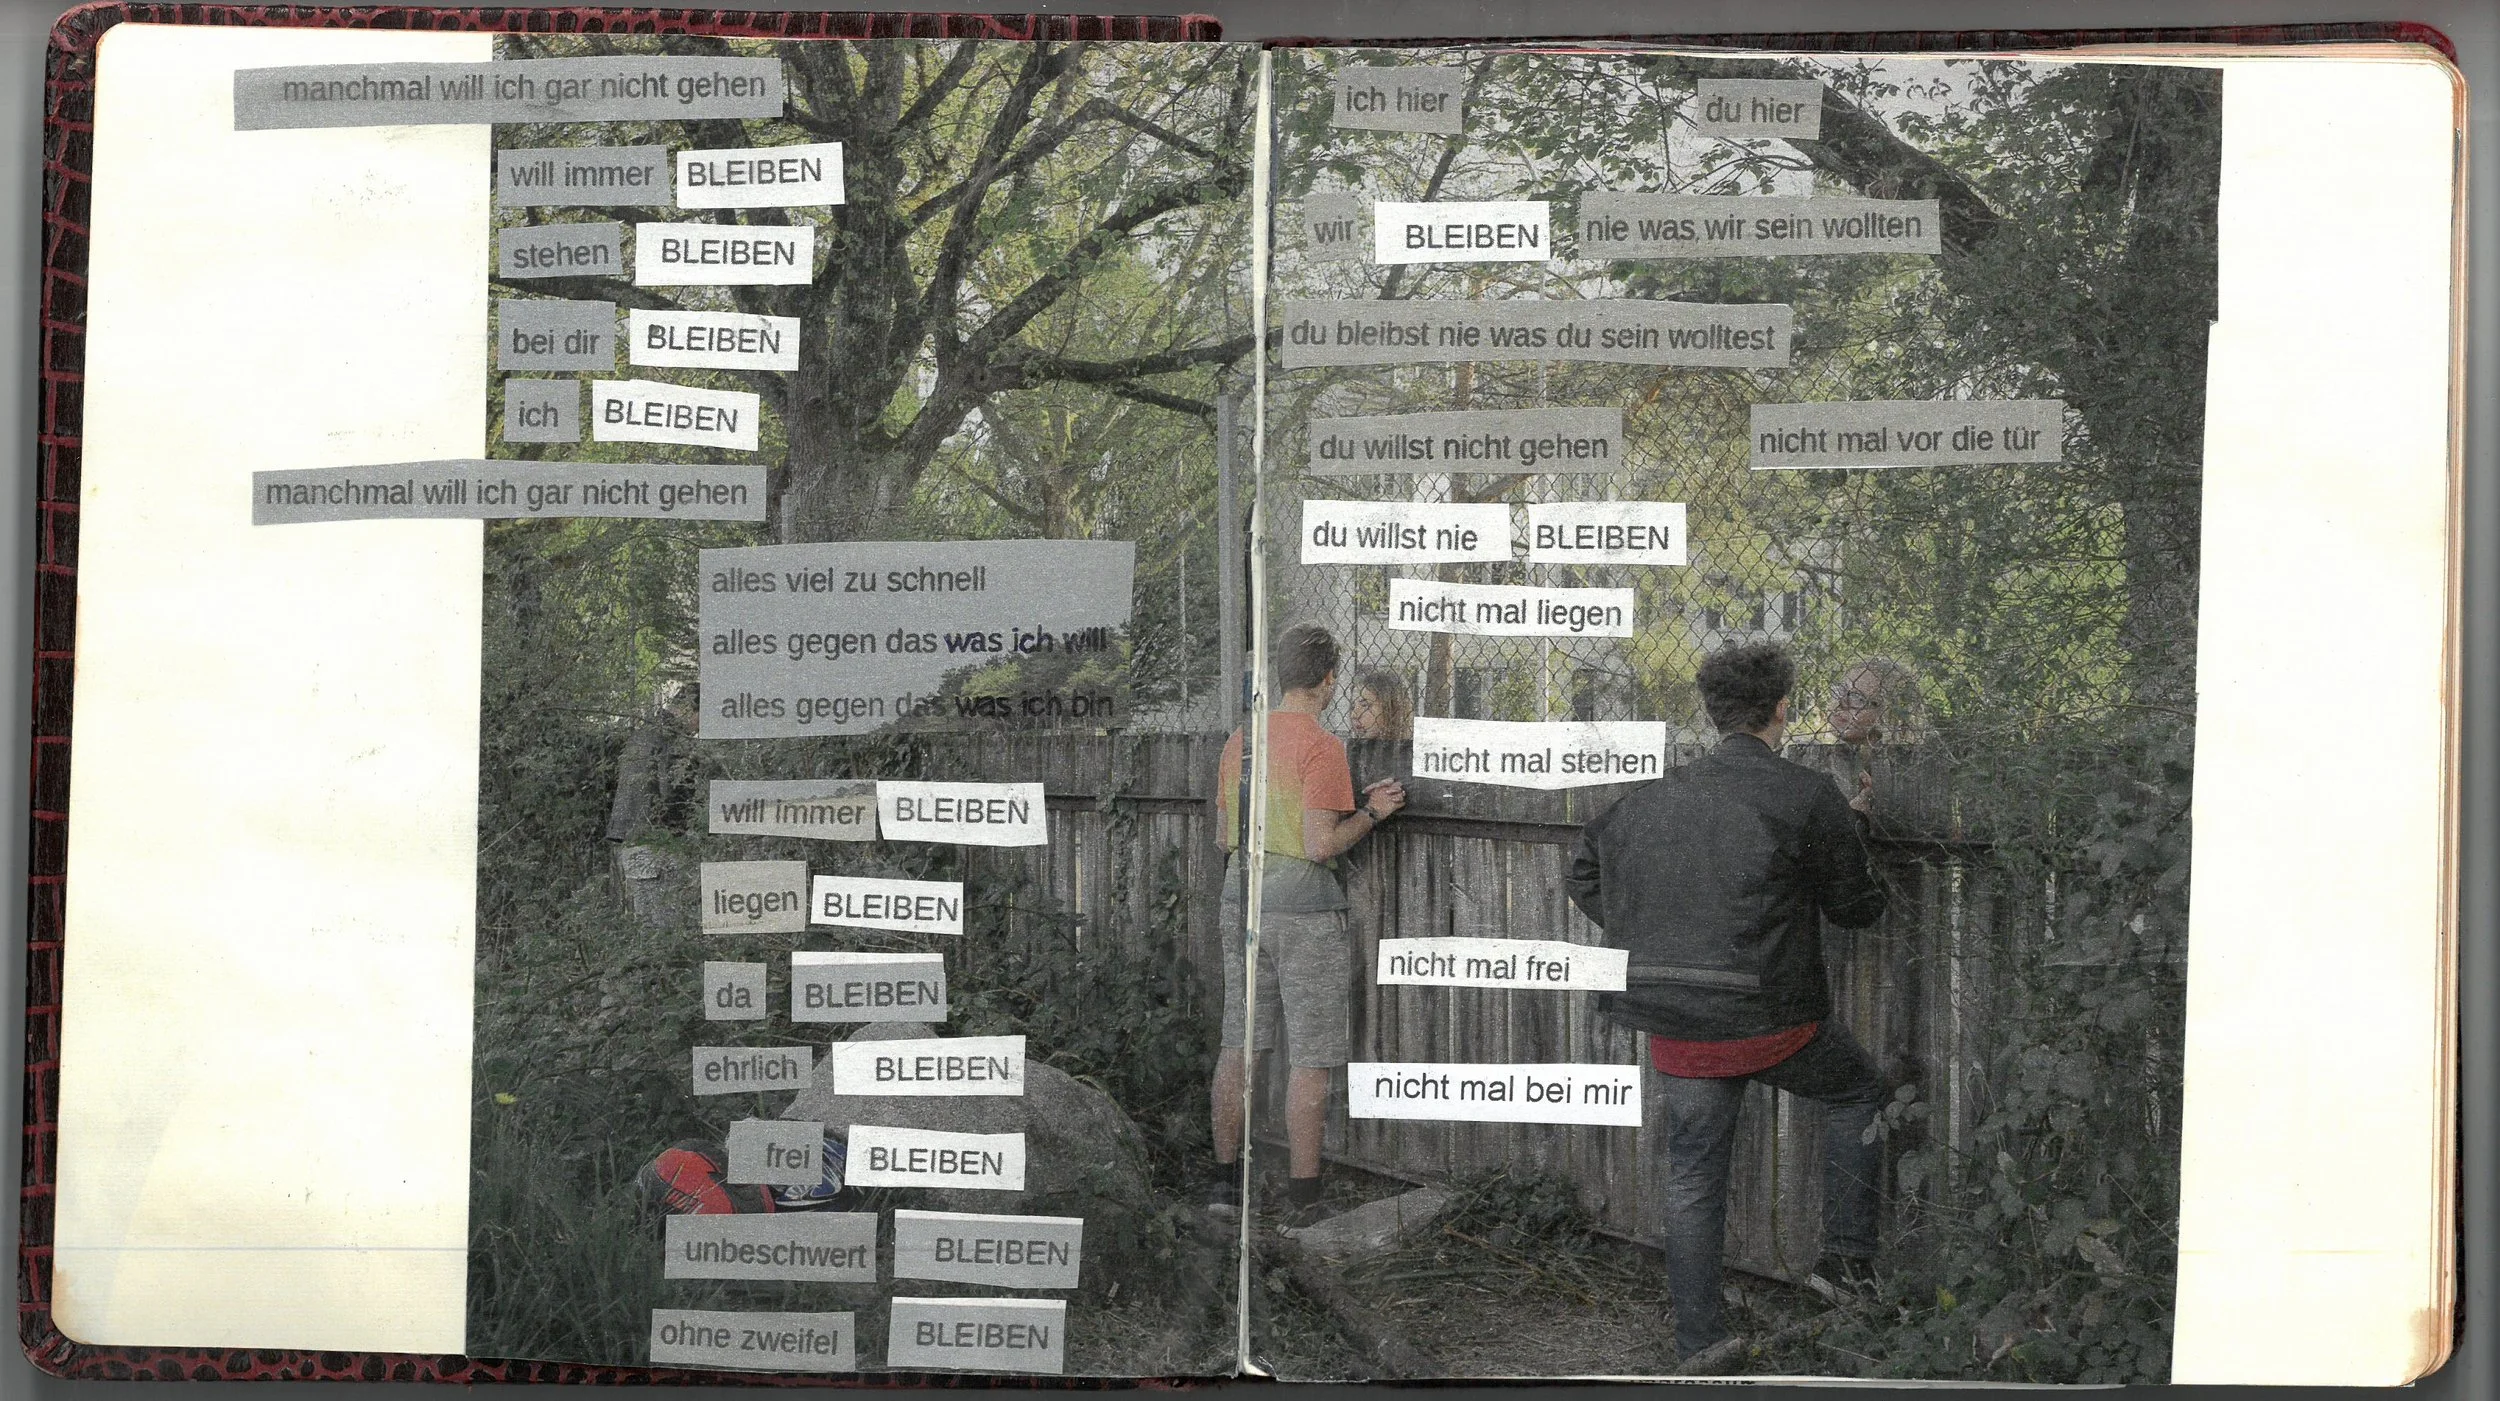 manchmal will ich gar nicht gehen
will immer BLEIBEN
stehen BLEIBEN
bei dir BLEIBEN
ich BLEIBEN
manchmal will ich gar nicht gehen
alles viel zu schnell
alles gegen das was ich will
alles gegen das was ich bin
will immer BLEIBEN
liegen BLEIBEN
da BLEIBEN
ehrlich BLEIBEN
frei BLEIBEN
unbeschwert BLEIBEN
ohne zweifel BLEIBEN
ich hier du hier
wir BLEIBEN nie was wir sein wollten
du bleibst nie was du sein wolltest
du willst nicht gehen nicht mal vor die tür
du willst nie BLEIBEN
nicht mal liegen
nicht mal stehen
nicht mal frei
nicht mal bei mir